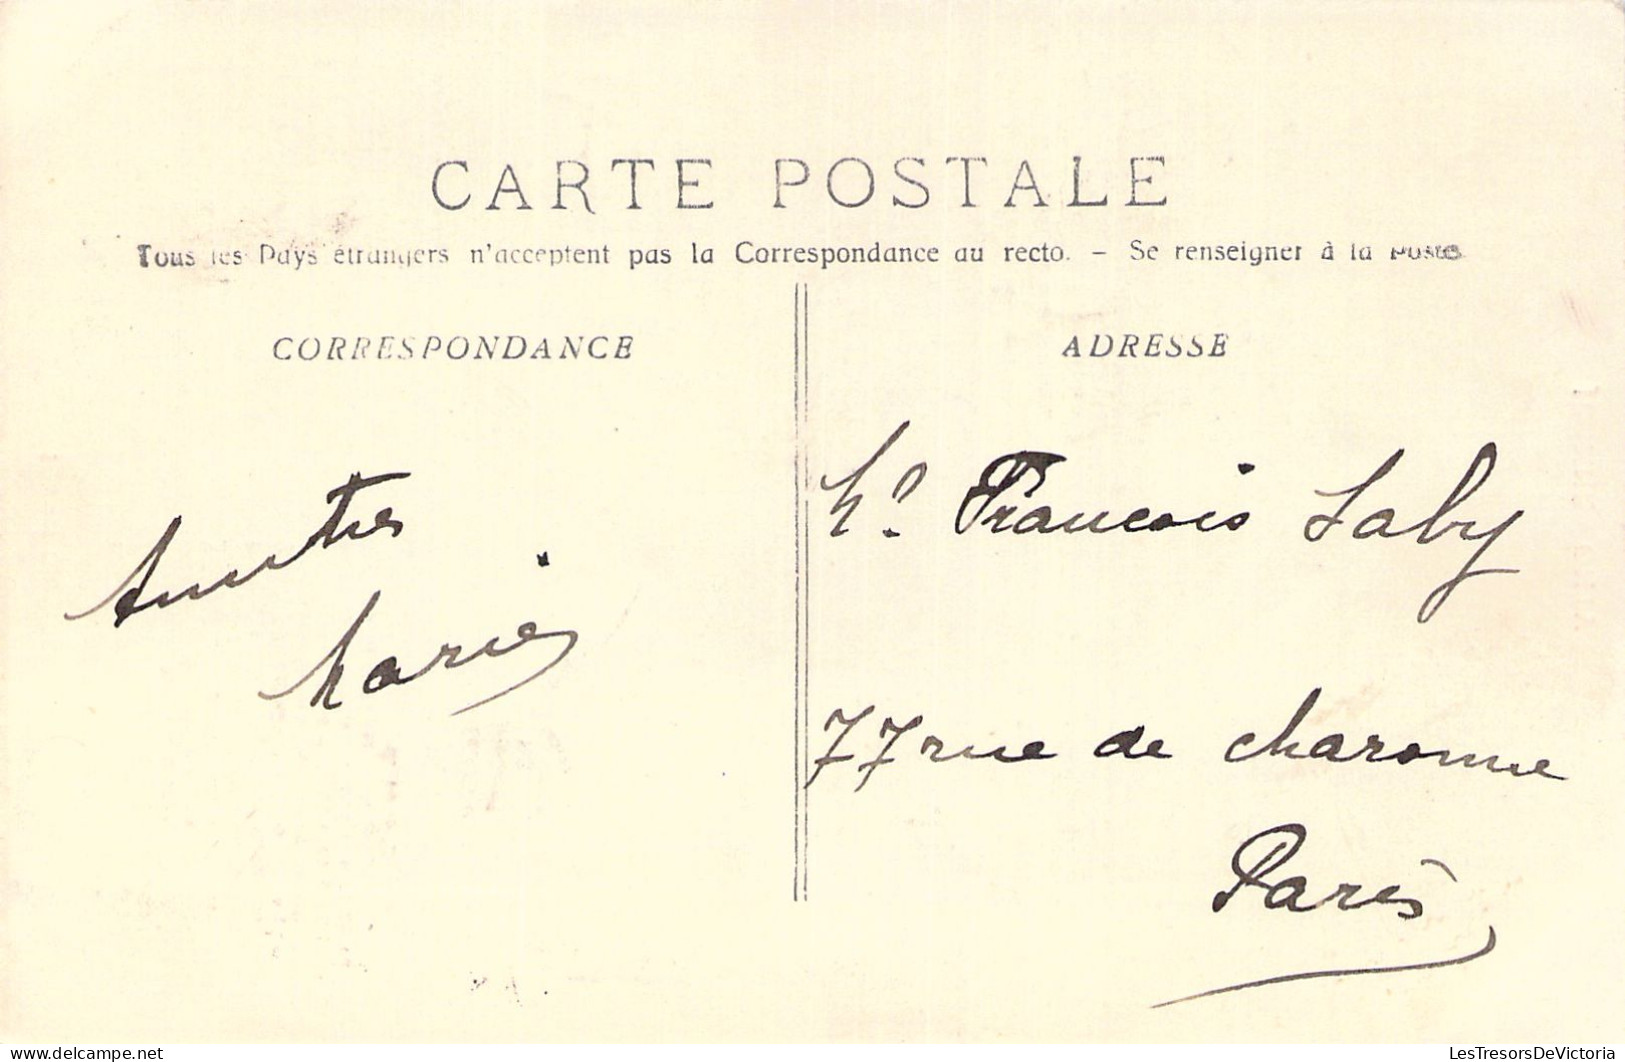 CARTE POSTALE
Tous les Pays étrangers n'acceptent pas la Correspondance au recto. – Se renseigner à la Poste
CORRESPONDANCE
ADRESSE
Amitiés
Marie
Mr Francois Laby
77 rue de charonne
Paris
Delcampe.net
LesTresorsDeVictoria